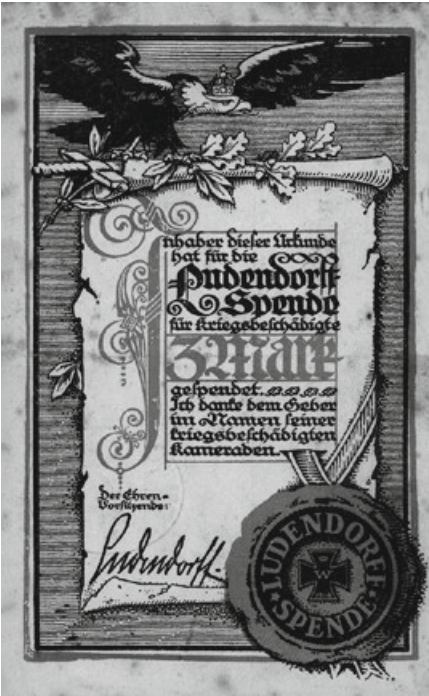 Inhaber dieser Urkunde
hat für die
Ludendorff
Spende
für Kriegsbeschädigte
3 Mark
gespendet.
Ich danke dem Geber
im Namen seiner
kriegsbeschädigten
Kameraden.
Der Ehren=
Vorsitzende:
Ludendorff.
LUDENDORFF
W
SPENDE